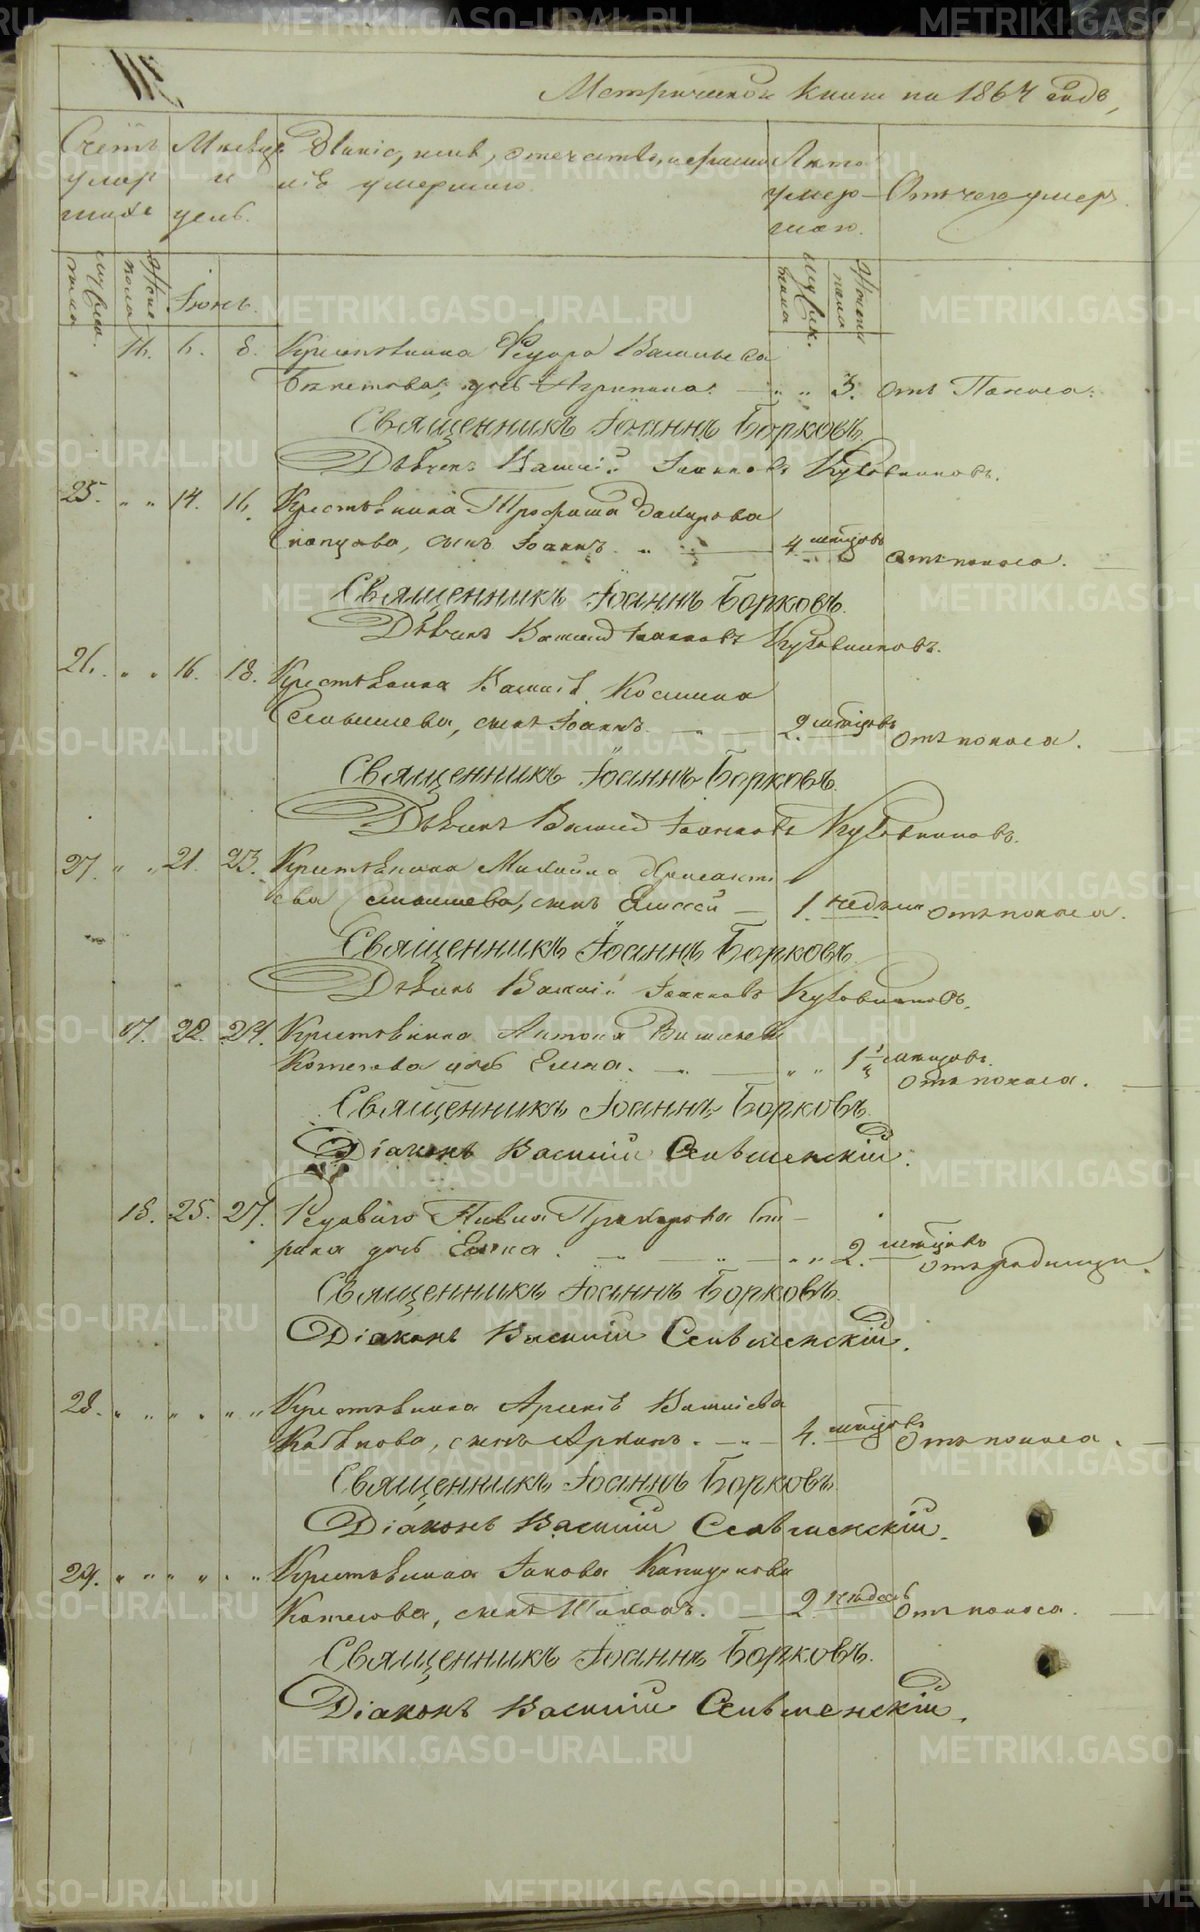 Метрической книги на 1864 годъ,
Счетъ умер шихъ
Мѣсяцъ и день.
Званіе, имя, отечество, и фамилія умершаго.
Лѣта умер шаго.
Отъ чего умеръ.
мужес. пола
Женс. пола
Іюнь.
мужск. пола
Женск. пола
16. 6. 8. Крестьянина Федора Васильева
дочь Агрипина. — „ „ 3. отъ Поноса.
Священникъ Іоаннъ Борковъ.
Дьячекъ Василій Іоанновъ Кудовщиковъ.
25. „ „ 14. 16. Крестьянина Трофима Захарова
сынъ Іоаннъ. „ — 4 мѣсяцовъ отъ поноса.
Священникъ Іоаннъ Борковъ.
Дьячекъ Василій Іоанновъ Кудовщиковъ.
26. „ „ 16. 18. Крестьянина Василія Космина
сынъ Іоаннъ. — 2. мѣсяцовъ отъ поноса.
Священникъ Іоаннъ Борковъ.
Дьячекъ Василій Іоанновъ Кудовщиковъ.
27. „ „ 21. 23. Крестьянина Михаила
сынъ Елисей — 1. недѣли отъ поноса.
Священникъ Іоаннъ Борковъ.
Дьячекъ Василій Іоанновъ Кудовщиковъ.
17. 22. 24. Крестьянина Антона Васильева
Котегова дочь Елена. — „ „ 1 ½ мѣсяцовъ. отъ поноса.
Священникъ Іоаннъ Борковъ.
Діаконъ Василій Селвменскій.
18. 25. 27. Рядового Павла Прохорова
дочь Елена. — „ „ 2. мѣсяцовъ отъ родимца.
Священникъ Іоаннъ Борковъ.
Діаконъ Василій Селвменскій.
28. „ „ „ „ „ „ Крестьянина Арсенія Васильева
сынъ — 4. мѣсяцовъ отъ поноса.
Священникъ Іоаннъ Борковъ.
Діаконъ Василій Селвменскій.
29. „ „ „ „ „ „ Крестьянина Іакова
Котегова, сынъ — 2 недѣль отъ поноса.
Священникъ Іоаннъ Борковъ.
Діаконъ Василій Селвменскій.
METRIKI.GASO-URAL.RU